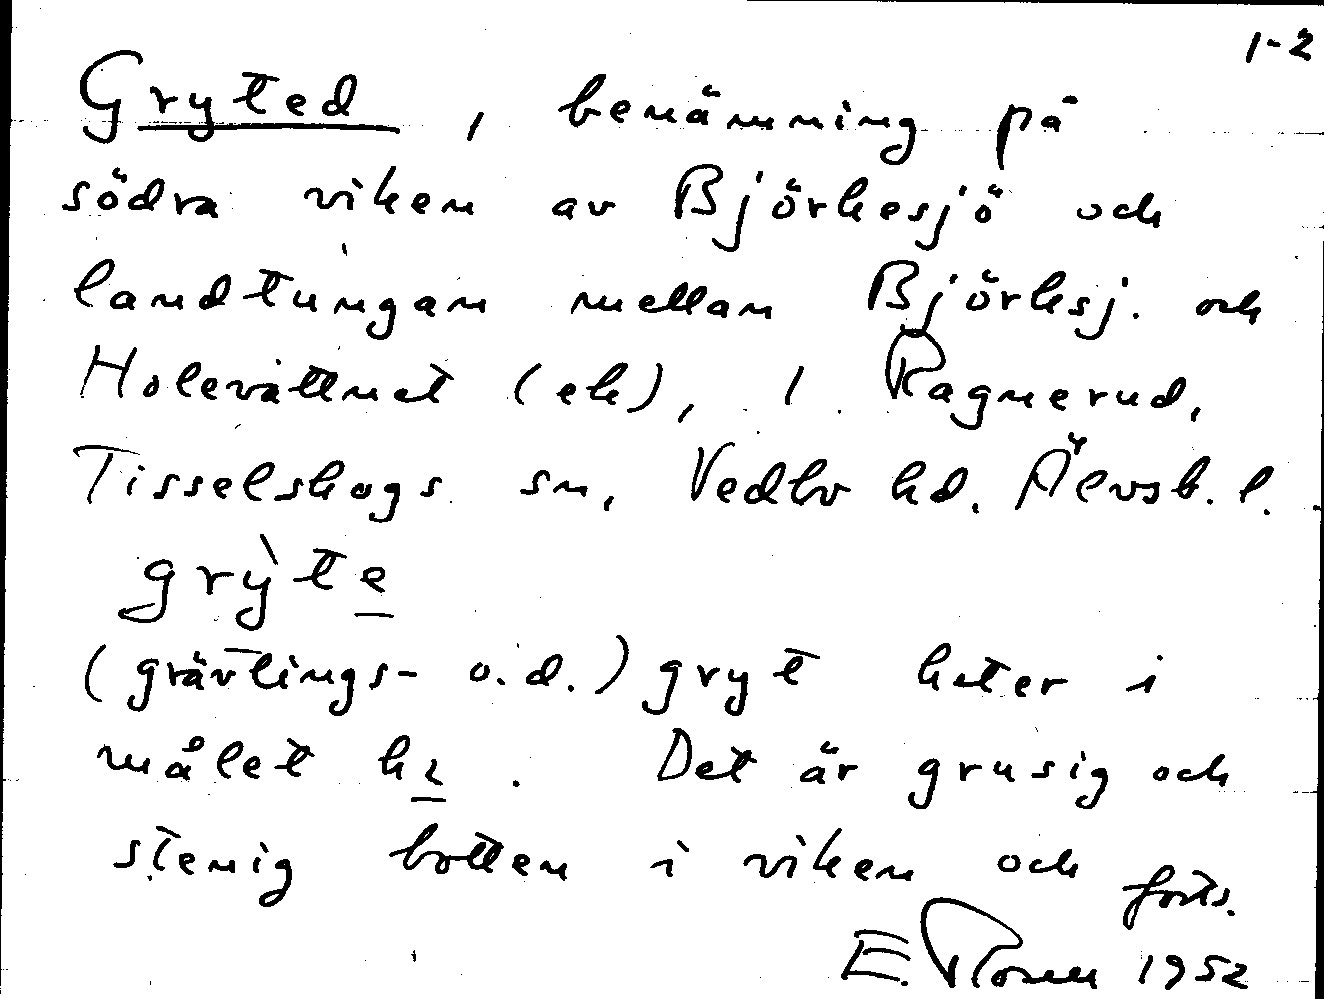 1-2
Gryted, benämning på
södra viken av Björkesjö och
landtungan mellan Björksj. och
Holevattnet (ek), i Ragnerud,
Tisselskogs sn, Vedbo hd. Älvsb. l.
grỳte
(grävlings- o.d.) gryt heter i
målet hı. Det är grusig och
stenig botten i viken och forts.
E. Rosell 1952